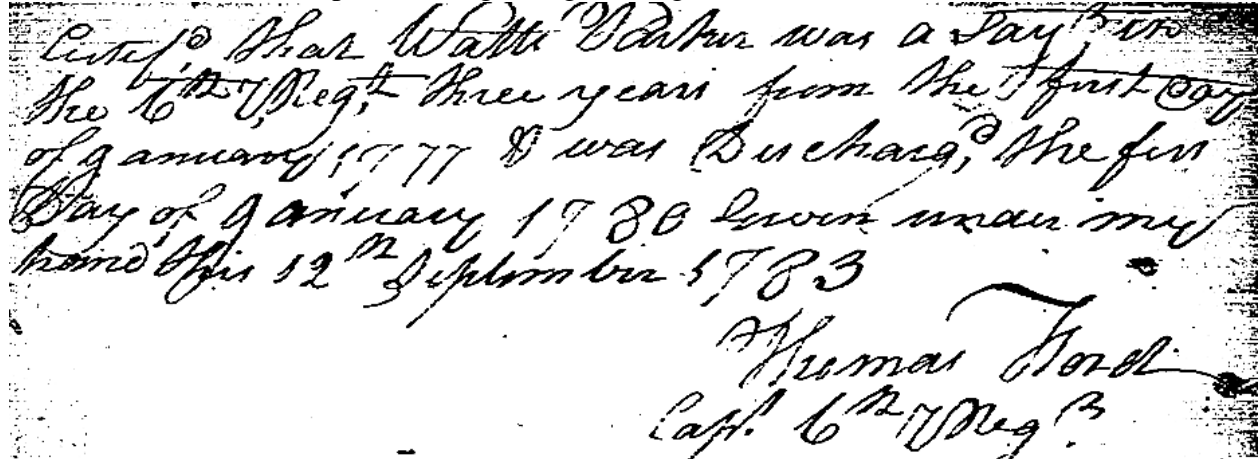 Certif,d that Watt Parker was a Say,r in
the 6th V,Reg,t three years from the first Day
of January 1777 & was Discharg,d the first
Day of January 1780 Given under my
hand this 12th September 1783
Thomas
Capt. 6th V Reg,t